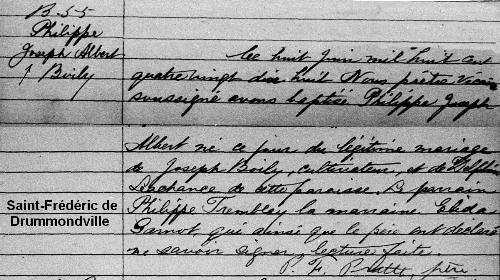 B-55
Philippe
Joseph Albert
Boily
Le huit Juin mil huit cent
quatre vingt dix huit Nous prêtre Vicaire
soussigné avons baptisé Philippe Joseph
Albert né ce jour du légitime mariage
de Joseph Boily, cultivateur, et de Delphine
Lachance de cette paroisse, Le parrain
Philippe Tremblay la marraine Elida
qui ainsi que le père ont déclaré
ne savoir signer, lecture faite
P. F. ptre.
Saint-Frédéric de
Drummondville